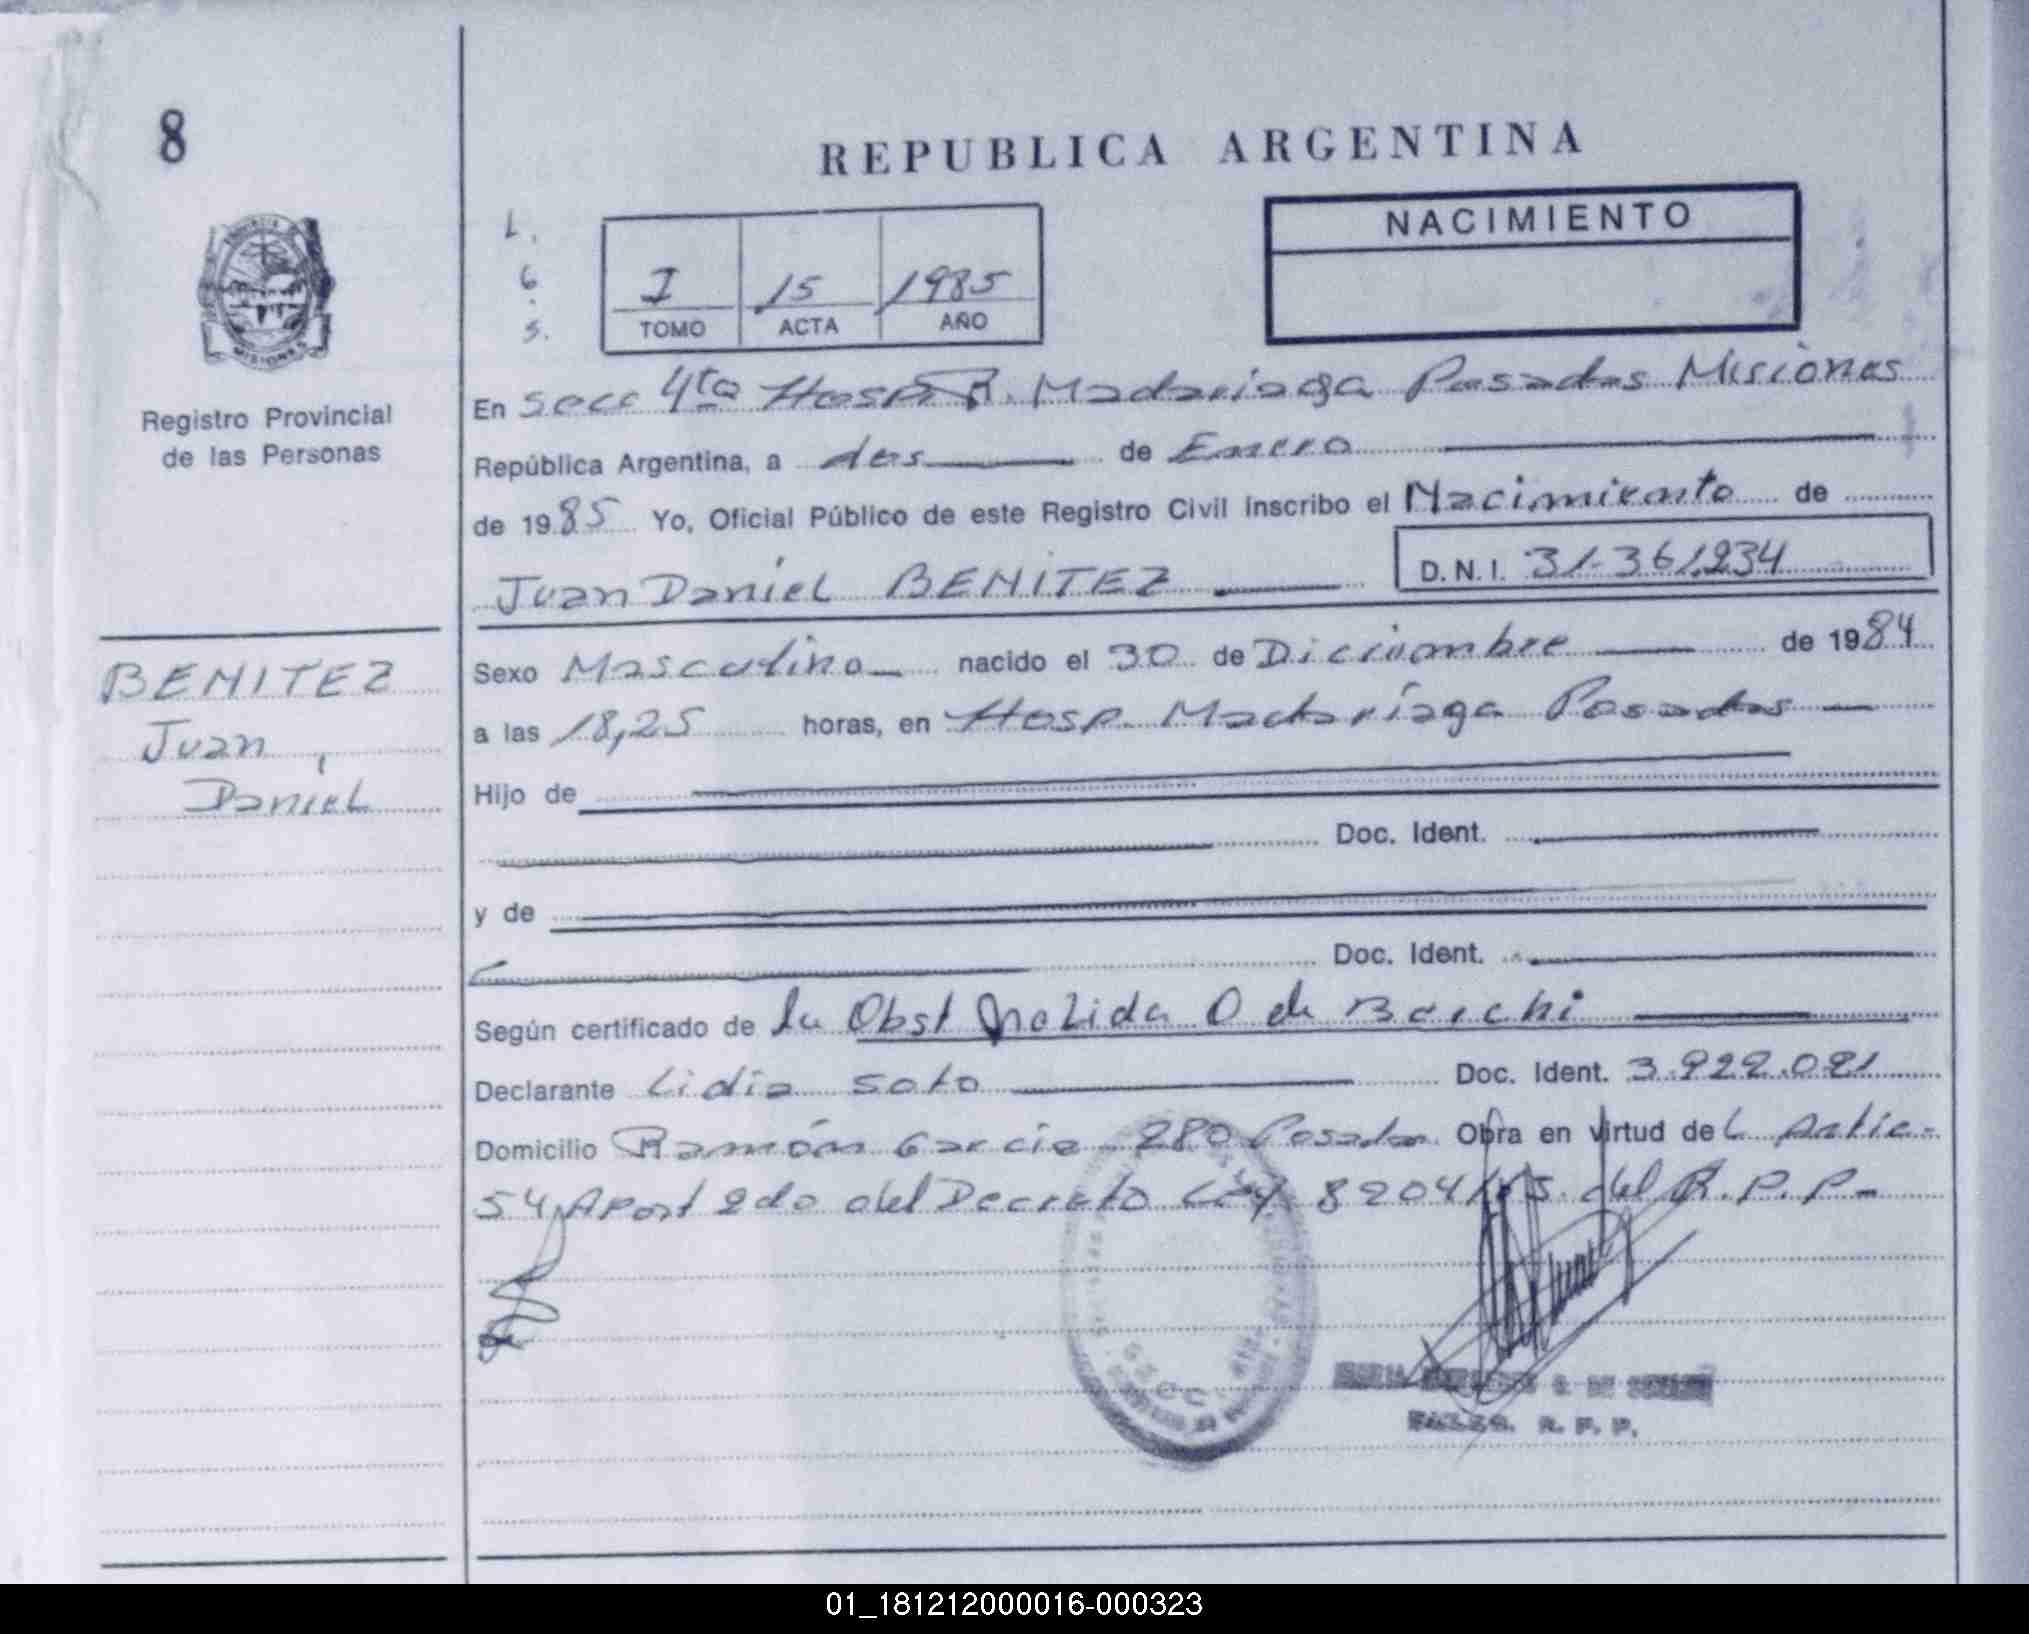 8
REPUBLICA ARGENTINA
L.
6
5.
I 15 1985
TOMO ACTA AÑO
NACIMIENTO
MISIONES
Registro Provincial
de las Personas
En Secc 4ta Hosp R. Madariaga Posadas Misiones
República Argentina, a dos de Enero
de 1985 Yo, Oficial Público de este Registro Civil inscribo el Nacimiento de
Juan Daniel BENITEZ D.N.I. 31.361.234
BENITEZ
Juan
Daniel
Sexo Masculino nacido el 30 de Diciembre de 1984
a las 18,25 horas, en Hosp. Madariaga Posadas
Hijo de
Doc. Ident.
y de
Doc. Ident.
Según certificado de la Obst O de
Declarante Lidia Soto Doc. Ident.
Domicilio Ramón Garcia 280 Posadas Obra en virtud del Artic-
54 Apart 2do del Decreto Ley 8204/ del R.P.P-
SECC. 4ta
R. P. P.
01_181212000016-000323